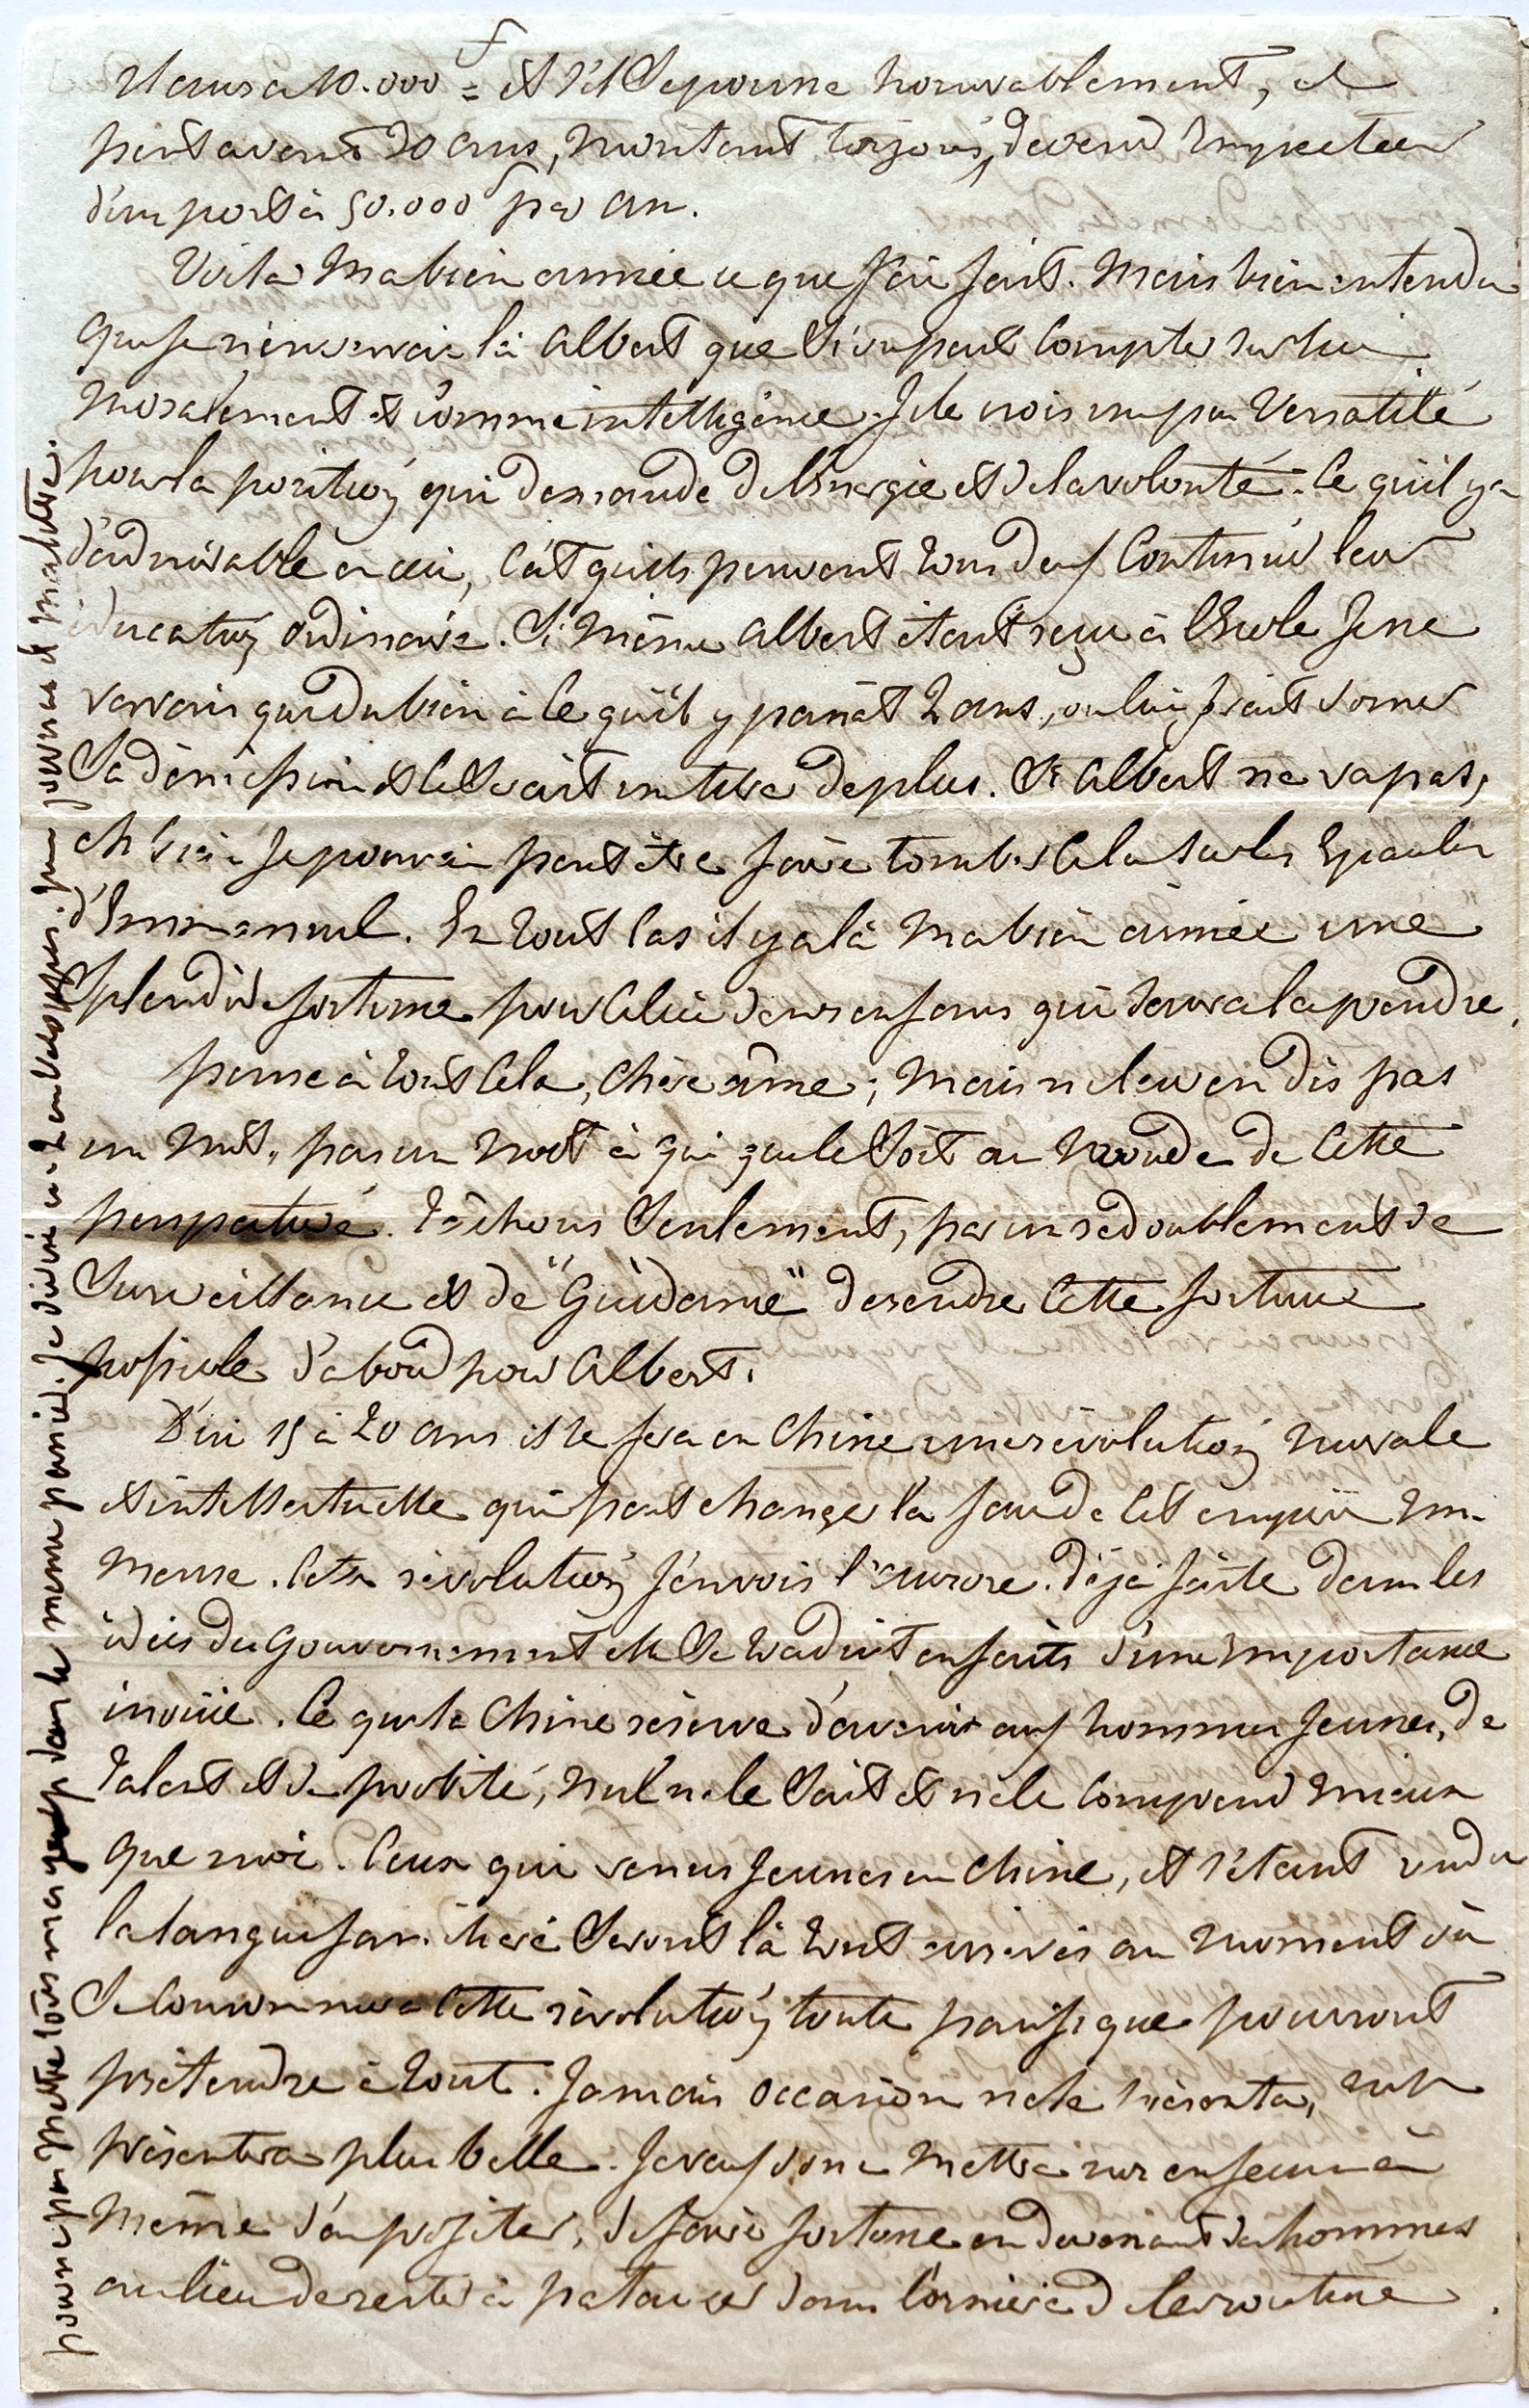 il aura 10.000 f = et s'il se pousse honorablement, il
peut avant 20 ans, montant toujours, devenir Inspecteur
d'un port à 50.000 f par an.
Voila ma bien aimée ce que j'ai fait. Mais bien entendu
que je n'enverrai là Albert que si on peut compter sur lui
moralement et comme intelligence. Je le crois un peu versatile
pour la position qui demande de l'Energie et de la volonté. Ce qu'il y a
d'admirable en ceci, c'est qu'ils peuvent tous deux continuer leur
éducation ordinaire. Si même Albert étant reçu à l'Ecole je ne
verrais que du bien à ce qu'il y passât 2 ans, on lui ferait donner
sa démission et ce serait un titre de plus. Si Albert ne va pas,
eh bien je pourrai peut être faire tomber cela sur les Epaules
d'Emmanuel. En tout cas il y a là ma bien aimée une
splendide fortune pour celui de nos enfans qui saura la prendre.
pense à tout cela, chère âme; mais ne leur en dis pas
un mot, pas un mot à qui que ce soit au monde de cette
perspective. Tâchons seulement, par un redoublement de
surveillance et de "Guidance" de rendre cette fortune
possible d'abord pour Albert.
D'ici 15 à 20 ans il se fera en Chine une révolution morale
et intellectuelle qui peut changer la face de cet empire im-
mense. Cette révolution j'en vois l'aurore. déjà faite dans les
idées du Gouvernement elle se traduit en faits d'une importance
inouïe. Ce que la Chine réserve d'avenir aux hommes jeunes, de
talent et de probité, nul ne le sait et ne le comprend mieux
que moi. Ceux qui venus jeunes en Chine, et s'étant rendu
la langue familière seront là tout arrivés au moment où
se consommera cette révolution toute pacifique pourront
prétendre à tout. Jamais occasion ne se présenta, ne se
présentera plus belle. Je veux donc mettre nos enfans à
même d'en profiter, de faire fortune en devenant des hommes
au lieu de rester à patauger dans l'ornière de la routine.
pour ne pas mettre tous mes œufs dans le même panier. Je divise en 2 enveloppes. mon journal et ma lettre.